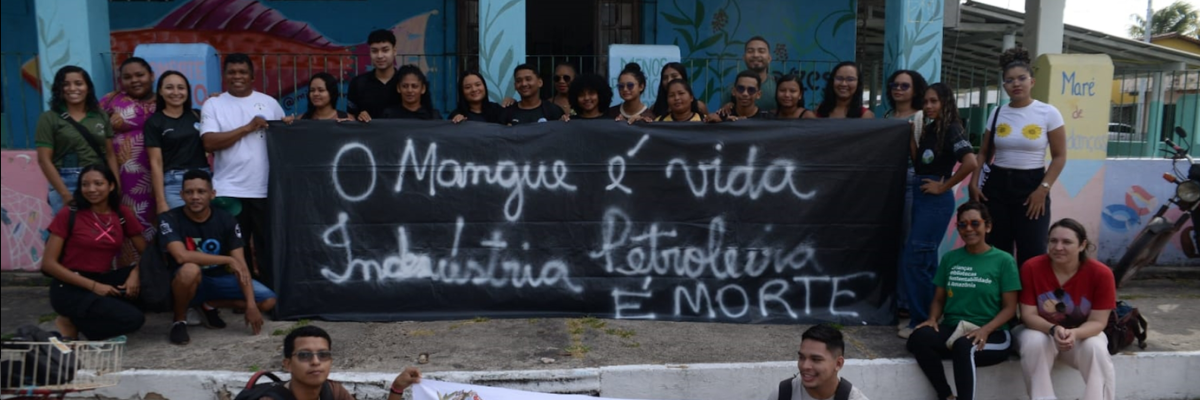 O Mangue é vida
Indústria Petroleira
É MORTE
Maré
de